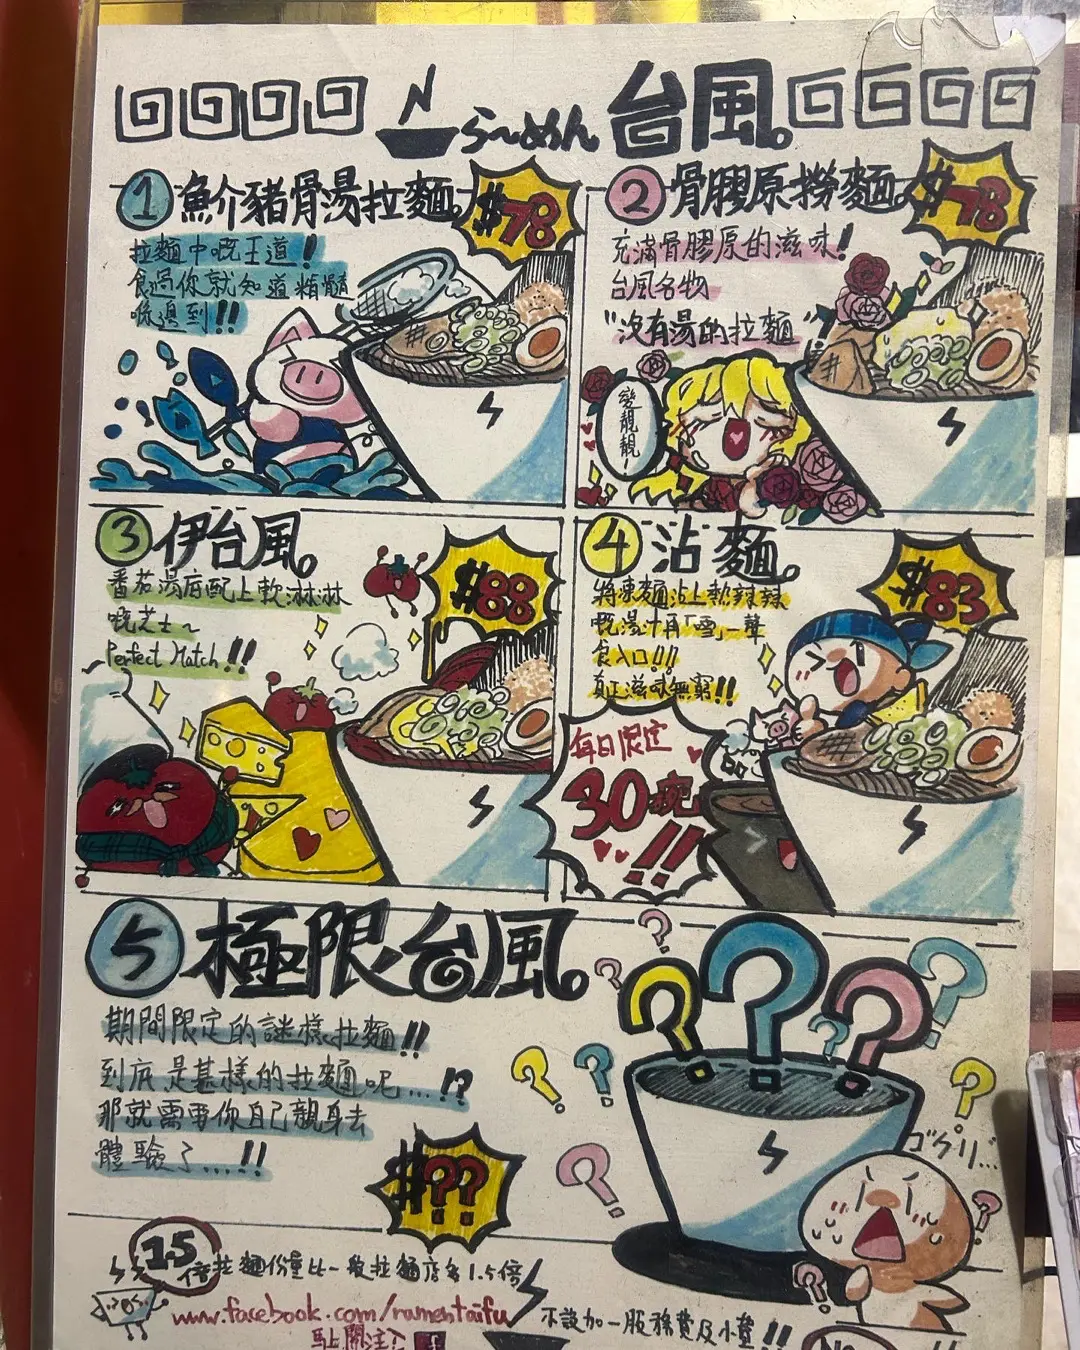 らーめん 台風。
1 魚介豬骨湯拉麵。 $78
拉麵中嘅王道!
食過你就知道精髓
喺邊到!!
2 骨膠原撈麵。 $78
充滿骨膠原的滋味!
台風名物
"沒有湯的拉麵"
變靚靚!
3 伊台風。 $88
番茄湯底配上軟淋淋
嘅芝士~
Perfect Match!!
4 沾麵。 $83
將凍麵沾上熱辣辣
嘅湯汁再「雪」一聲
食入口!!
真正滋味無窮!!
每日限定
30碗!!
5 極限台風。
期間限定的謎樣拉麵!!
到底是甚樣的拉麵呢...!?
那就需要你自己親身去
體驗了...!!
$??
ゴクリ...
1.5倍 拉麵份量比一般拉麵店多1.5倍
www.facebook.com/ramentaifu
不設加一服務費及小費!!